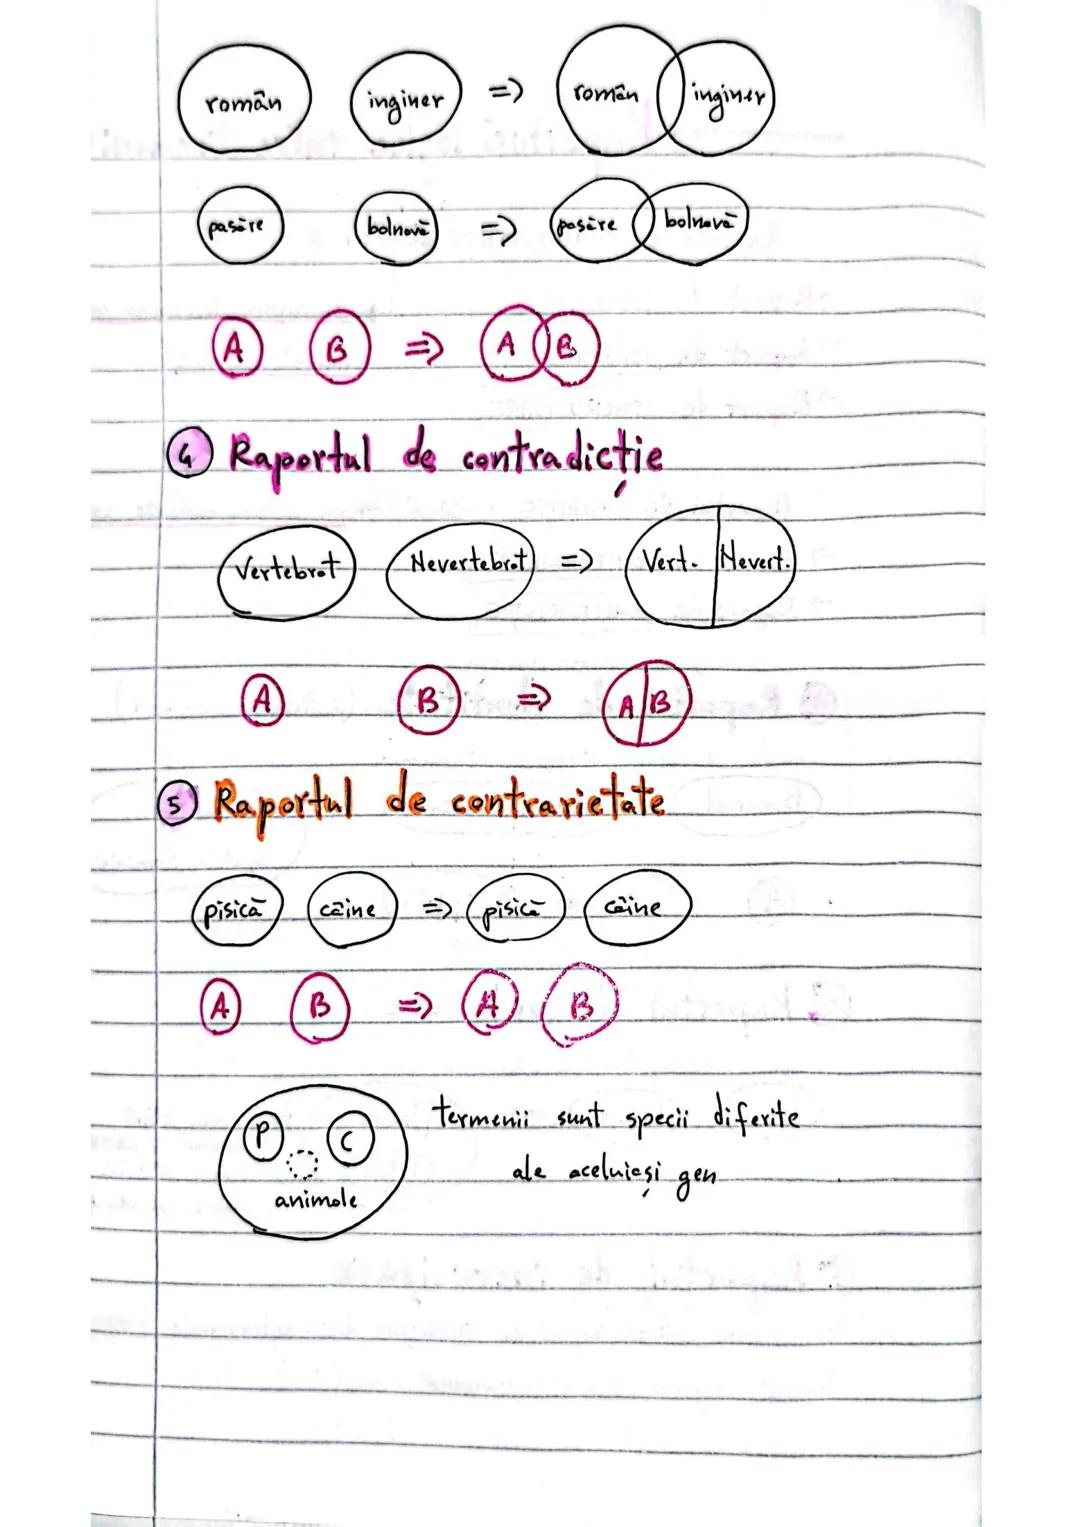 român inginer => român inginer
pasăre bolnavă => pasăre bolnavă
A B => A B
4 Raportul de contradicție
Vertebrat Nevertebrat => Vert. Nevert.
A B => A B
5 Raportul de contrarietate
pisică câine => pisică câine
A B => A B
P C
animale
termenii sunt specii diferite
ale aceluiași gen